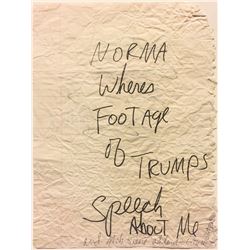 NORMA
Wheres
FOOTAge
of
TRUMPS
Speech
About Me